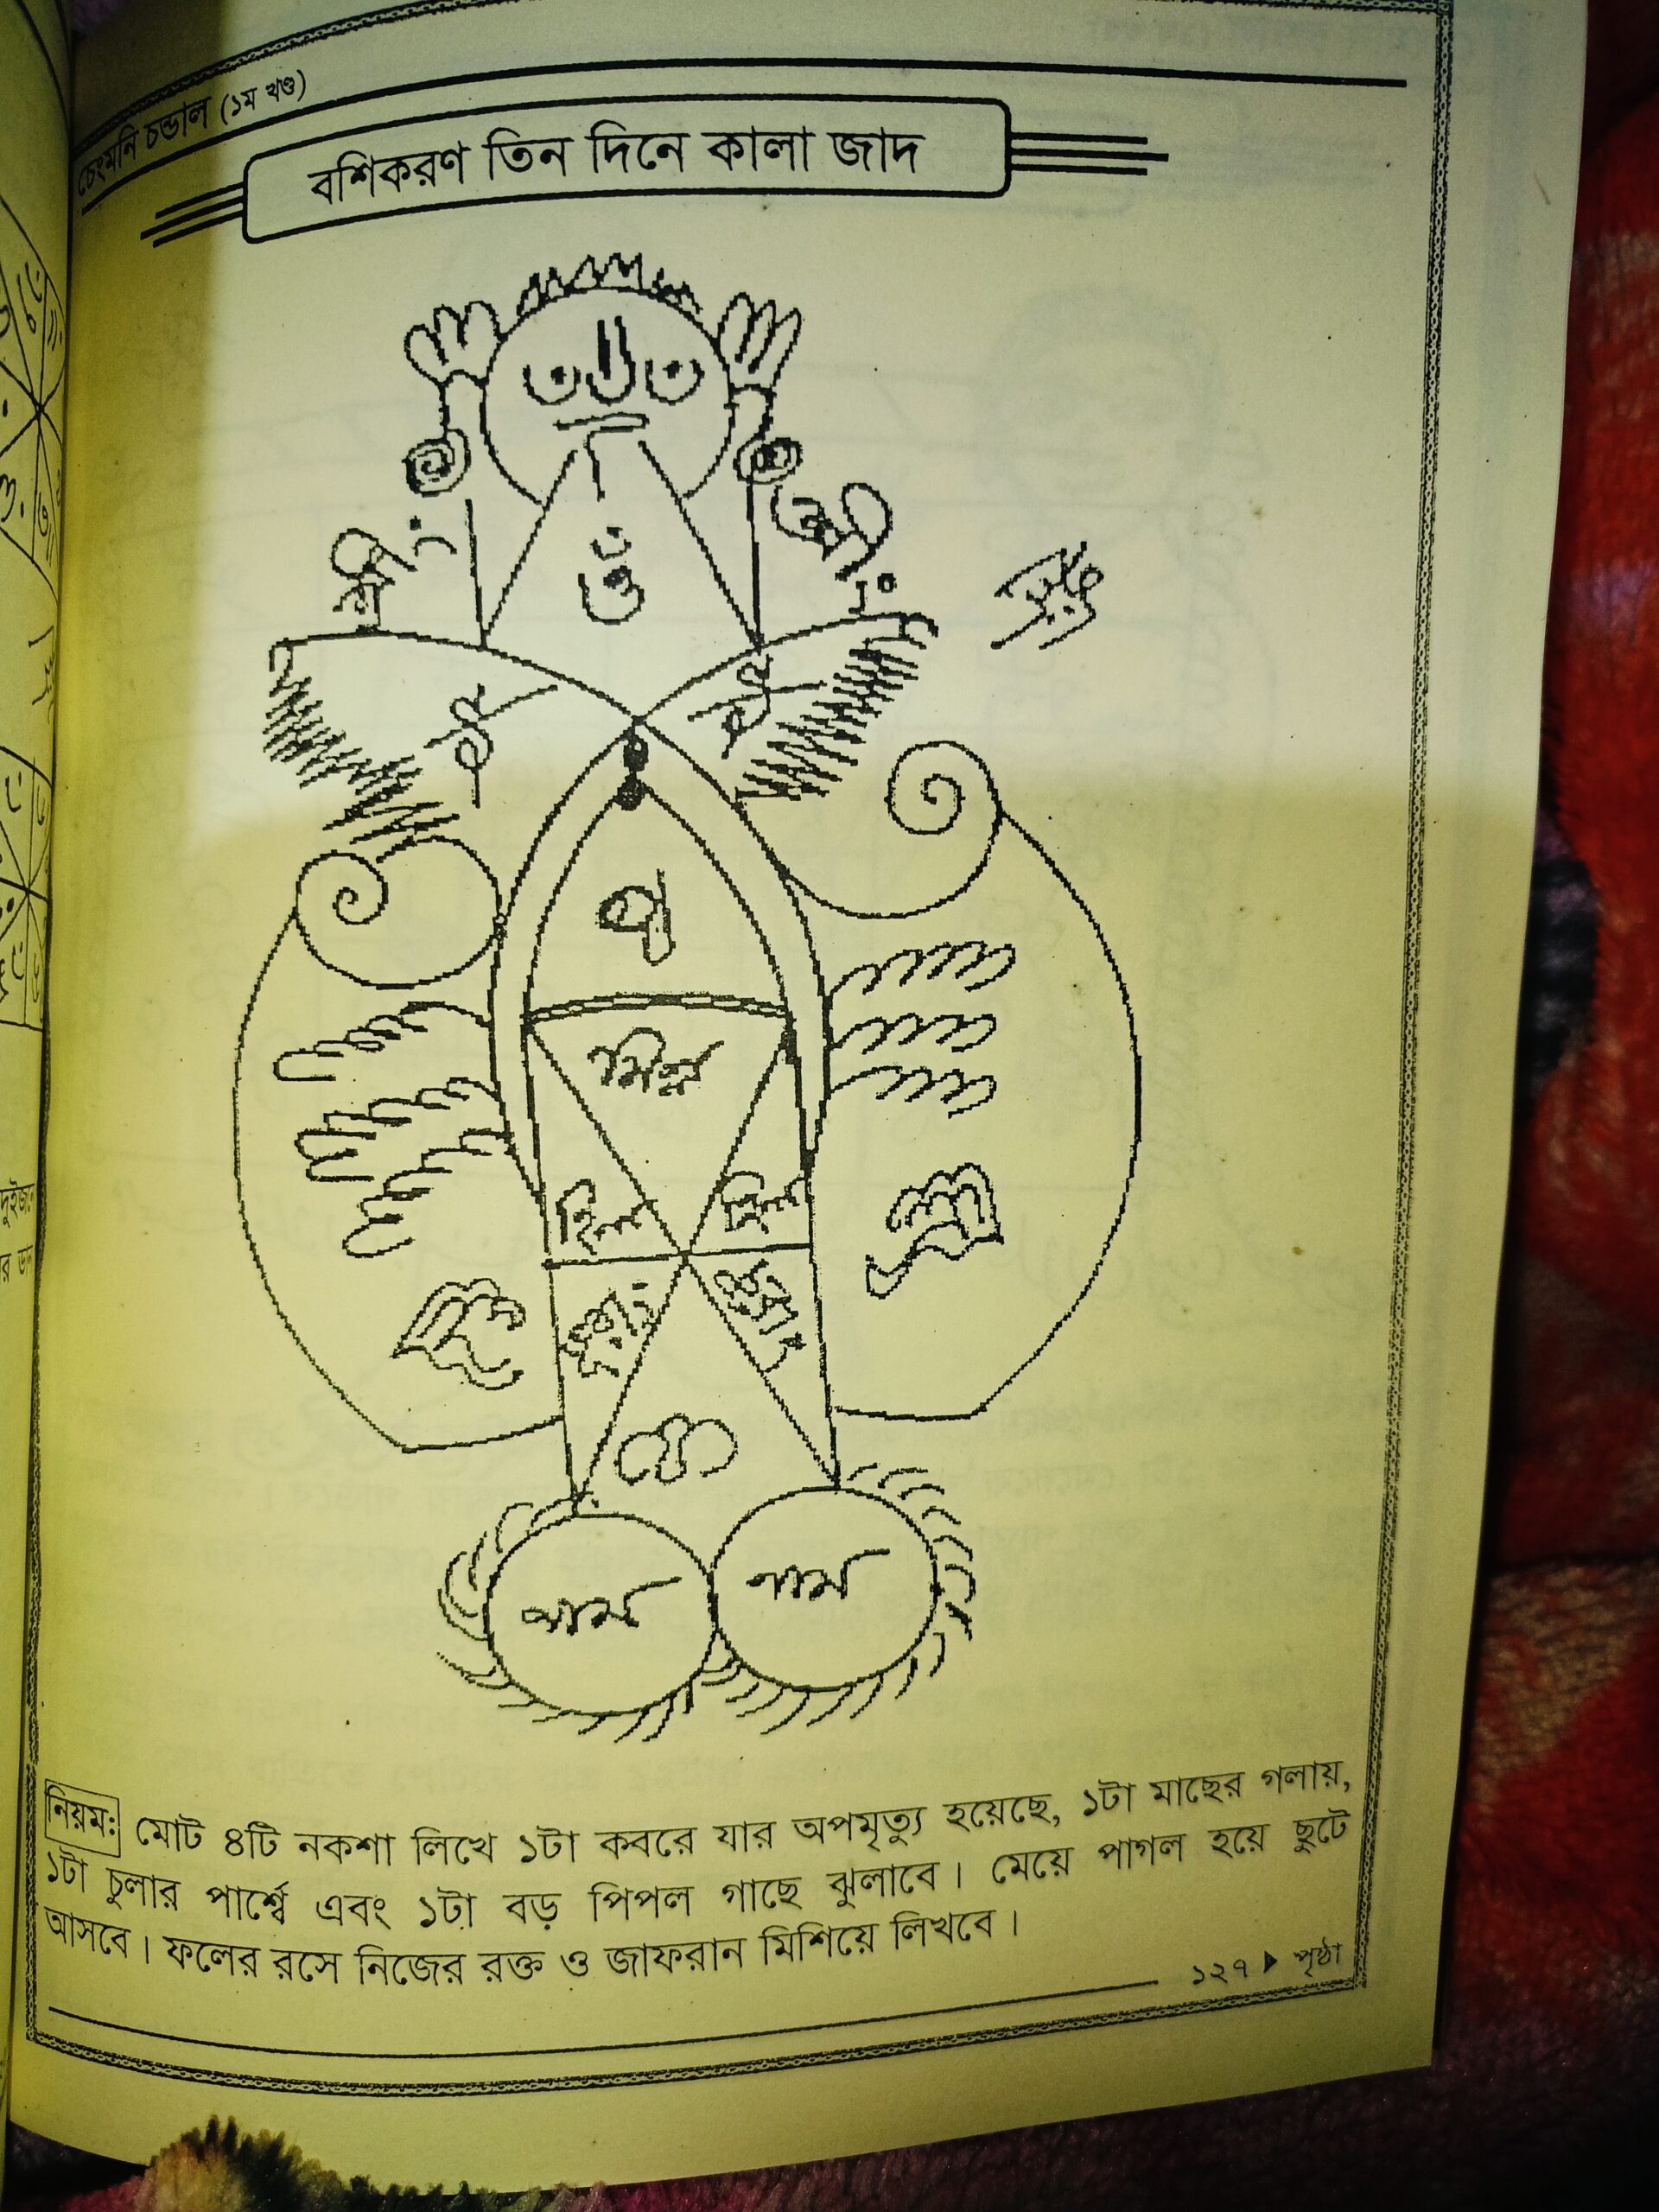 চেংমনি চন্ডাল (১ম খণ্ড)
বশিকরণ তিন দিনে কালা জাদ
ওঁ
মিল
হিল
নাম
নাম
নিয়ম: মোট ৪টি নকশা লিখে ১টা কবরে যার অপমৃত্যু হয়েছে, ১টা মাছের গলায়,
১টা চুলার পার্শ্বে এবং ১টা বড় পিপল গাছে ঝুলাবে। মেয়ে পাগল হয়ে ছুটে
আসবে। ফলের রসে নিজের রক্ত ও জাফরান মিশিয়ে লিখবে।
১২৭ ▶ পৃষ্ঠা